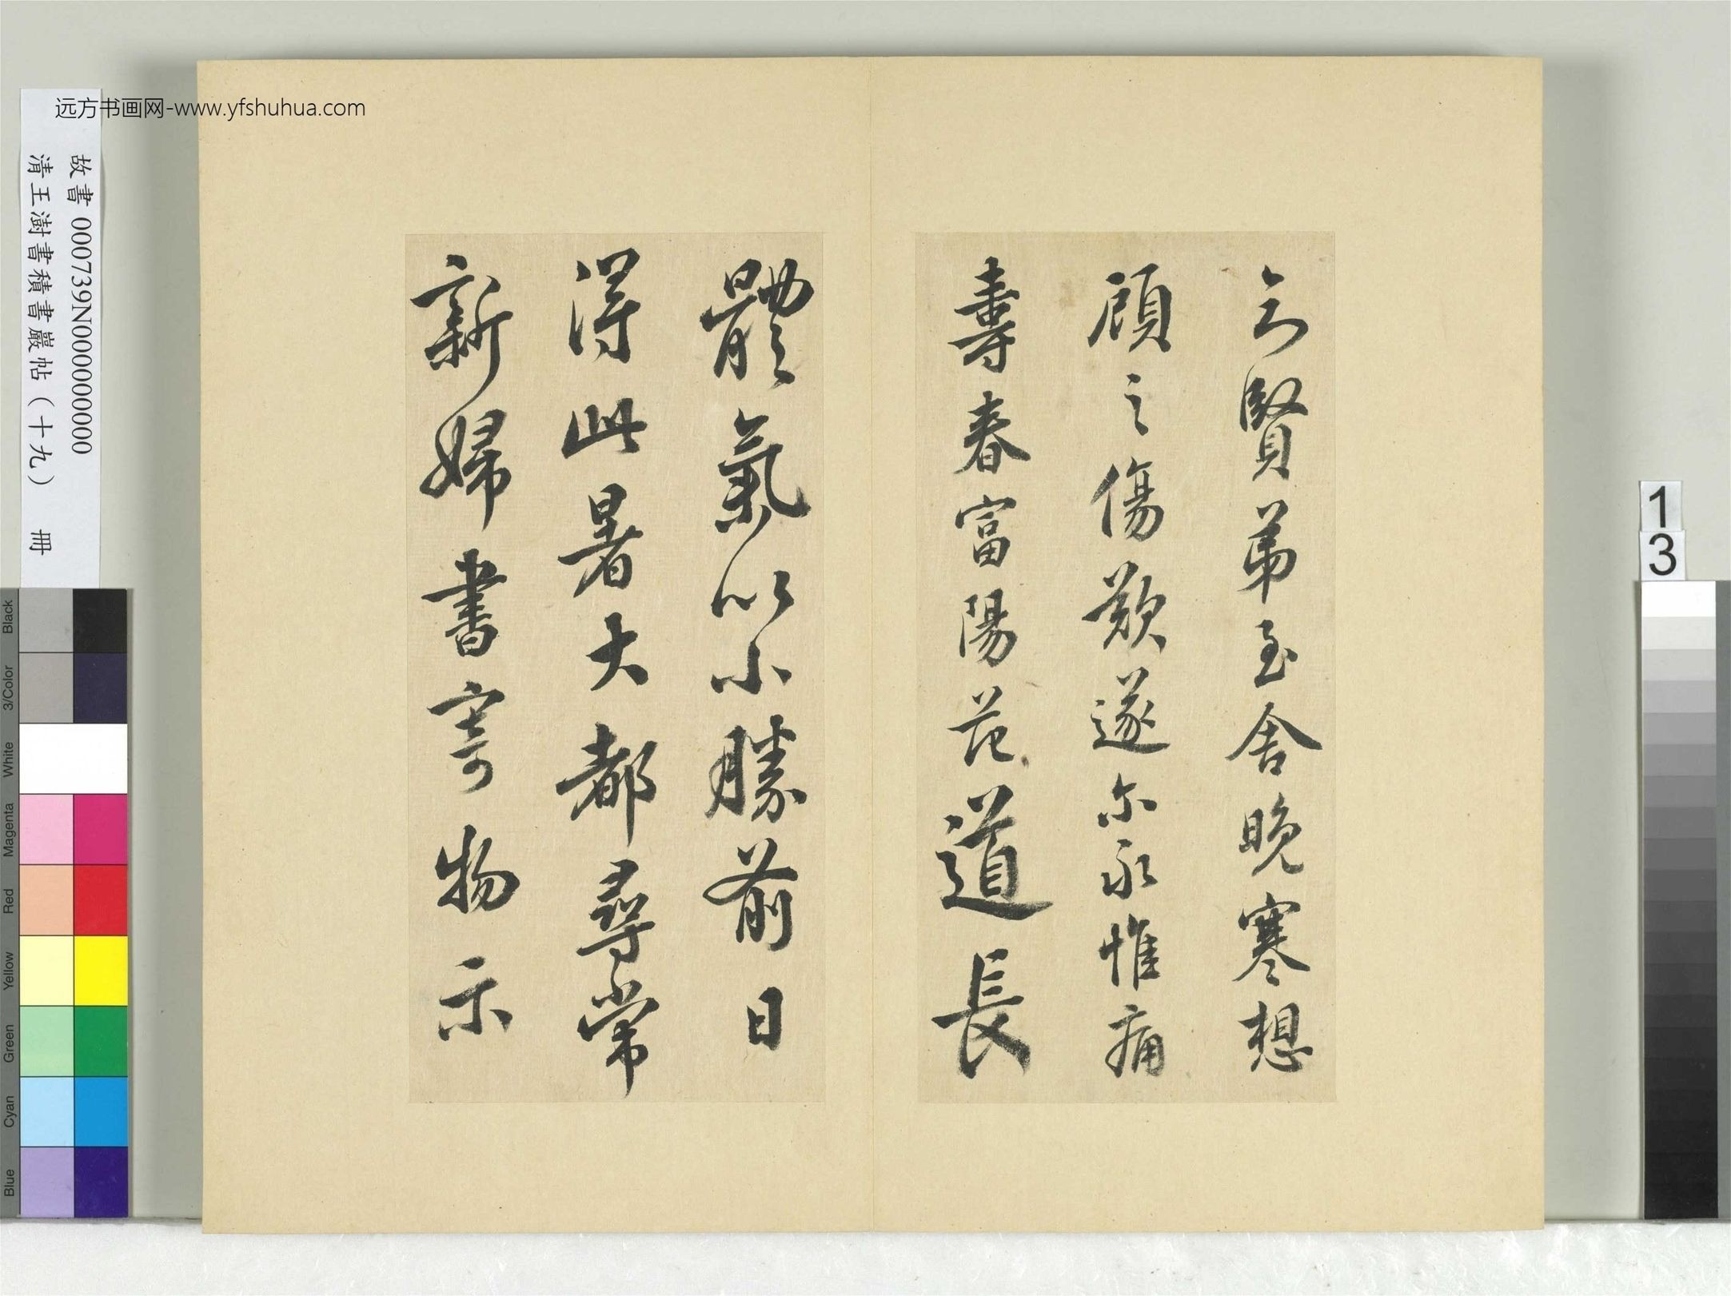 远方书画网-www.yfshuhua.com
故書 000739N000000000
清王澍書積書巖帖（十九） 冊
賢弟至舍晚寒想
顧之傷歎遂尔永惟痛
壽春富陽范道長
體氣以小勝前日
得此暑大都尋常
新婦書寄物示
13
Black
3/Color
White
Magenta
Red
Yellow
Green
Cyan
Blue